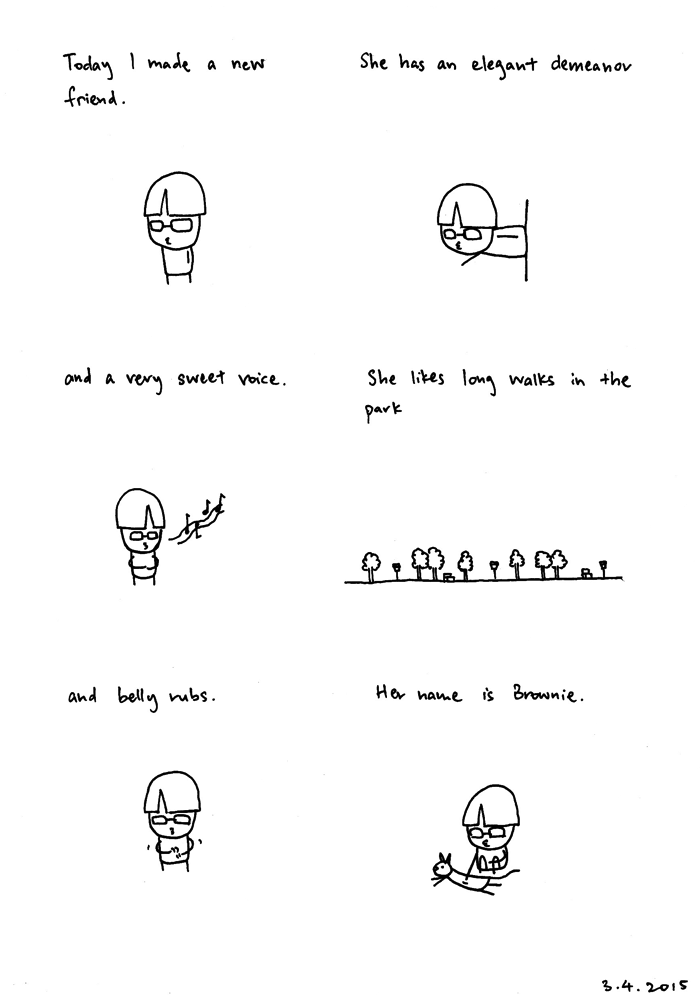 Today I made a new
friend.
She has an elegant demeanor
and a very sweet voice.
She likes long walks in the
park
and belly rubs.
Her name is Brownie.
3.4.2015